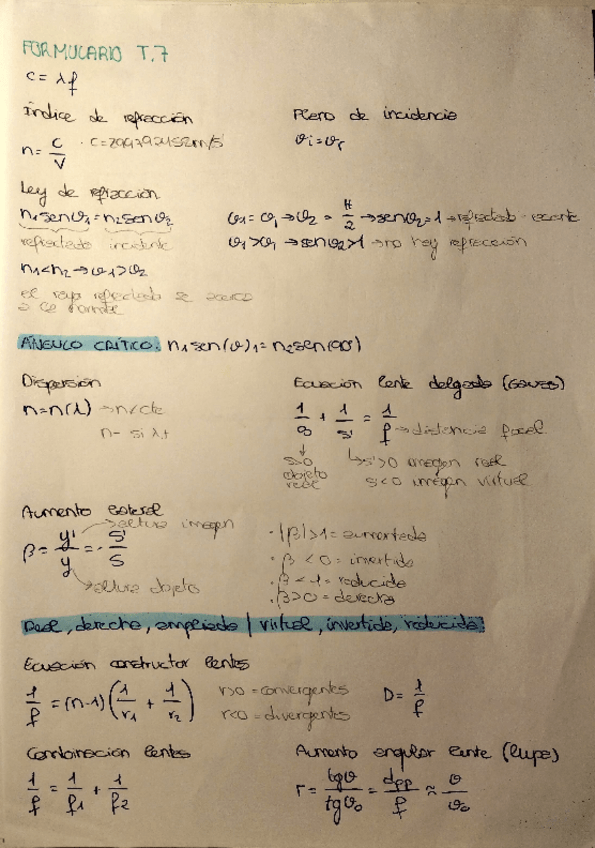 FORMULARIO T.7
c = λf
Índice de refracción
n = c/v · c=299792452m/s
Plano de incidencia
θi=θr
Ley de refracción
n1senθ1=n2senθ2
refractado incidente
θ1=θ1→θ2=π/2→senθ2=1→refractado
θ1>θ1→senθ2>1→no hay refracción
n1<n2→θ1>θ2
el rayo refractado se acerca
a la normal
ÁNGULO CRÍTICO: n1sen(θ)1=n2sen(90)
Dispersión
n=n(λ)→n≠cte
n- si λ+
Ecuación lente delgada (Gauss)
1/s + 1/s' = 1/f → distancia focal
s>0
objeto
real
s'>0 imagen real
s<0 imagen virtual
Aumento lateral
→altura imagen
β = y'/y = - s'/s
→altura objeto
· |β|>1= aumentada
· β < 0 = invertida
· β < 1 = reducida
· β>0 = derecha
Real, derecha, ampliada / virtual, invertida, reducida
Ecuación constructor lentes
1/f = (n-1)(1/r1 + 1/r2)
r>0 = convergentes
r<0 = divergentes
D= 1/f
Combinación lentes
1/f = 1/f1 + 1/f2
Aumento angular lente (lupa)
r = tgθ/tgθ0 = dpp/f ≈ θ/θ0